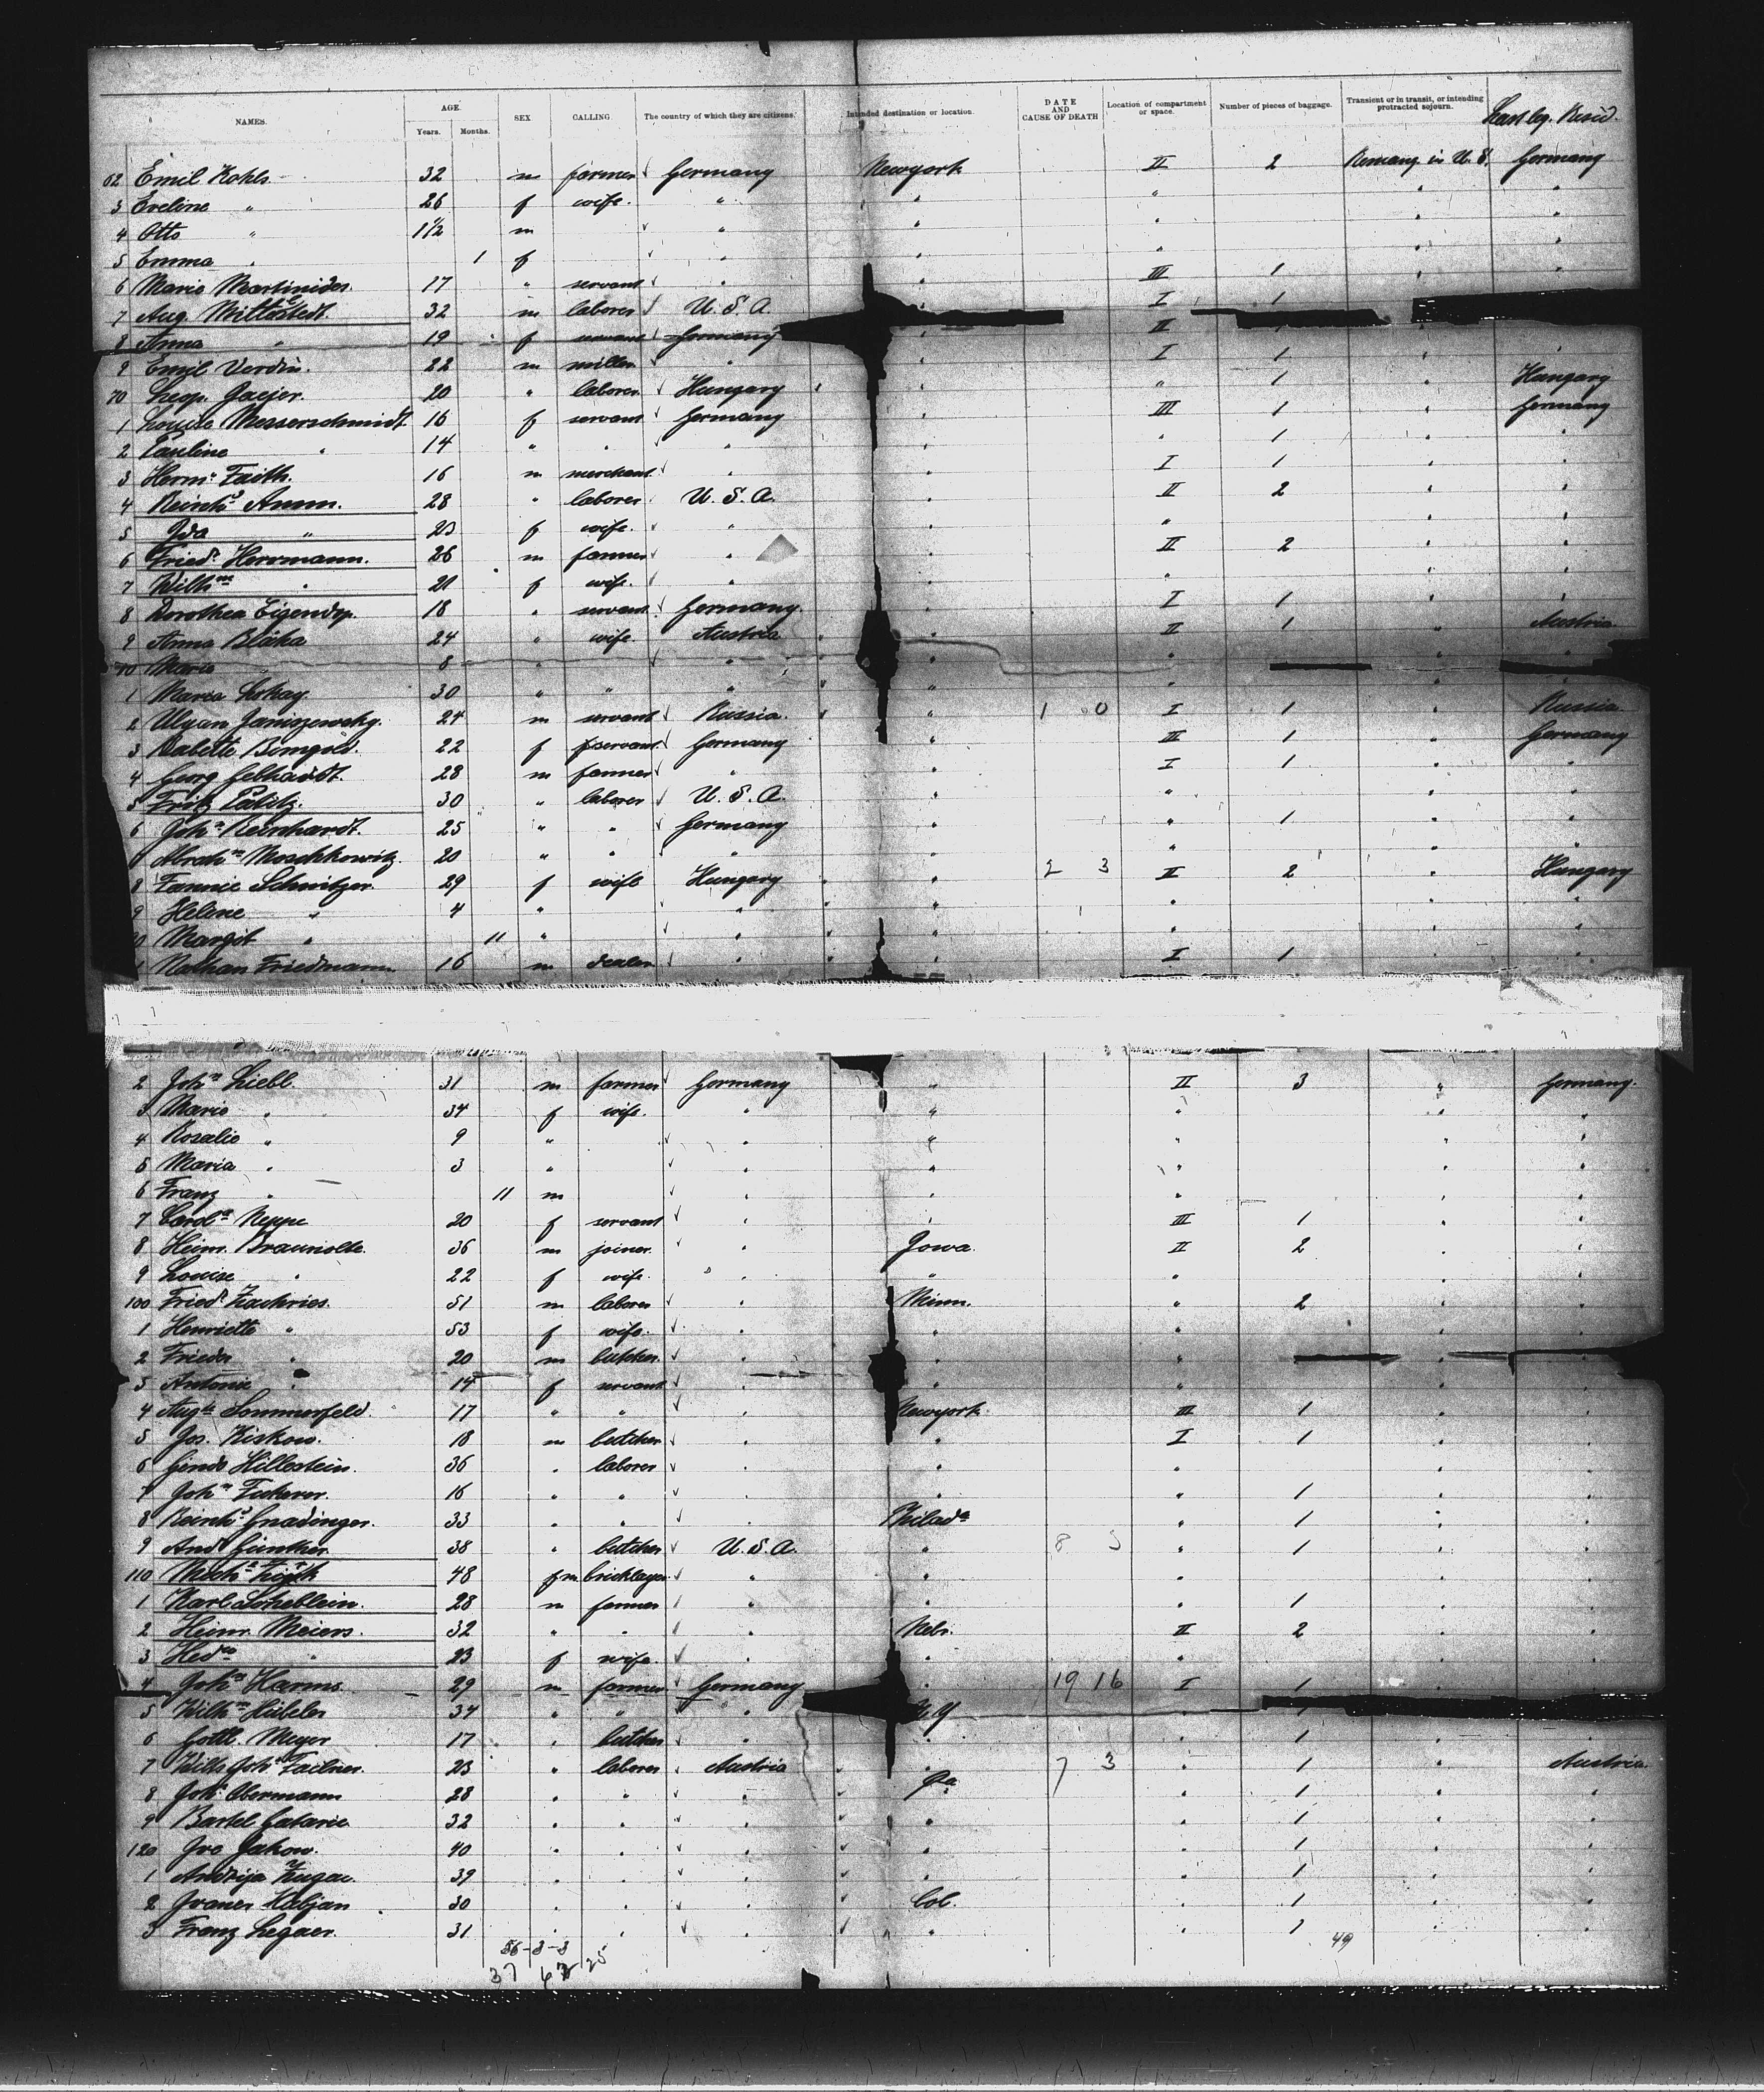 NAMES. AGE. Years. Months. SEX CALLING The country of which they are citizens. Intended destination or location. DATE AND CAUSE OF DEATH Location of compartment or space. Number of pieces of baggage. Transient or in transit, or intending protracted sojourn. Last leg. Resid.
62 Emil Kohls 32 m farmer Germany Newyork II 2 Remang. in U. S. Germany
3 Eveline " 26 f wife " " " " "
4 Otto " 1 1/2 m " " " " "
5 Emma " 1 f " " " " "
6 Marie Martinides. 17 " servant " " III 1 " "
7 Aug. 32 m laborer U. S. A. " I 1
8 Anna " 19 f servant Germany " II
9 Emil Verdin. 22 m miller " " I 1 " "
70 Leop. 20 " laborer Hungary " " 1 " Hungary
1 Louise Messerschmidt. 16 f servant Germany " III 1 " Germany
2 Pauline " 14 " " " " " 1 " "
3 Herm. Faith. 16 m merchant " " I 1 " "
4 Reinhd Amm. 28 " laborer U. S. A. " II 2 " "
5 Ida " 23 f wife. " " " " "
6 Friedr. Herrmann. 26 m farmer " " II 2 " "
7 Wilhme " 21 f wife. " " " " "
8 Dorothea 18 " servant Germany. " I 1 " "
9 Anna Blaha 24 " wife. Austria " II 1 " Austria
80 Marie " 8 " " " " " "
1 Maria Lokay. 30 " " " " " " "
2 Janiszewsky. 24 m servant Russia. " 1 0 I 1 " Russia.
3 Babette 22 f servant Germany " III 1 " Germany
4 Georg Gebhardt. 28 m farmer " " I 1 " "
5 Fritz 30 " laborer U. S. A. " " " "
6 John Reinhardt. 25 " " Germany " " 1 " "
Abrahm Moschkowitz. 20 " " " " " " "
8 Fannie Schnitzer 29 f wife Hungary " 2 3 II 2 " Hungary
9 Helene " 4 " " " " " "
90 Margit " 11 " " " " " "
Nathan Friedmann 16 m dealer " " I 1 " "
2 John Liebl. 31 m farmer Germany " II 3 " Germany.
3 Marie " 34 f wife. " " " " "
4 Rosalie " 9 " " " " " "
5 Maria " 3 " " " " " "
6 Franz " 11 m " " " " "
7 Carola Neppe 20 f servant " " III 1 " "
8 Heinr. 36 m joiner. " Jowa. II 2 " "
9 Louise " 22 f wife. " " " " "
100 Friedr. Zachries. 51 m laborer " Minn. " 2 " "
1 Henriette " 53 f wife. " " " " "
2 Frieder " 20 m butcher. " " " " "
3 Antonie " 14 f servant " " " " "
4 Augte Sommerfeld. 17 " " " Newyork. III 1 " "
5 Jos. Kiskow. 18 m butcher " " I 1 " "
6 Hillestein. 36 " laborer " " " " "
7 Johm 16 " " " " " 1 " "
8 Reinhd Gnadinger. 33 " " " Philada " 1 " "
9 And. Günther 38 " butcher U. S. A. " 8 3 " 1 " "
110 48 m bricklayer " " " " "
1 Karl Scheblein. 28 m farmer " " " 1 " "
2 Heinr. Meiers. 32 " " " Nebr. II 2 " "
3 Hedw " 23 f wife. " " " " "
4 Johs Harms 29 m farmer Germany " 19 16 I 1 " "
5 Wilhm Hübeler 34 " " " N.Y " 1
6 Gottl. Meyer 17 " butcher " " " 1 " "
7 Failner. 23 " laborer Austria " 7 3 " 1 " Austria
8 Joh. Obermann 28 " " " Pa " 1 " "
9 Bartel 32 " " " " " 1 " "
120 Ivo Jakow. 40 " " " " " 1 " "
1 Andrija 39 " " " " " 1 " "
2 Habjan 30 " " " Col. " 1 " "
3 Franz Legaer. 31 " " " " " 1 " "
56-3-3 49
37 25